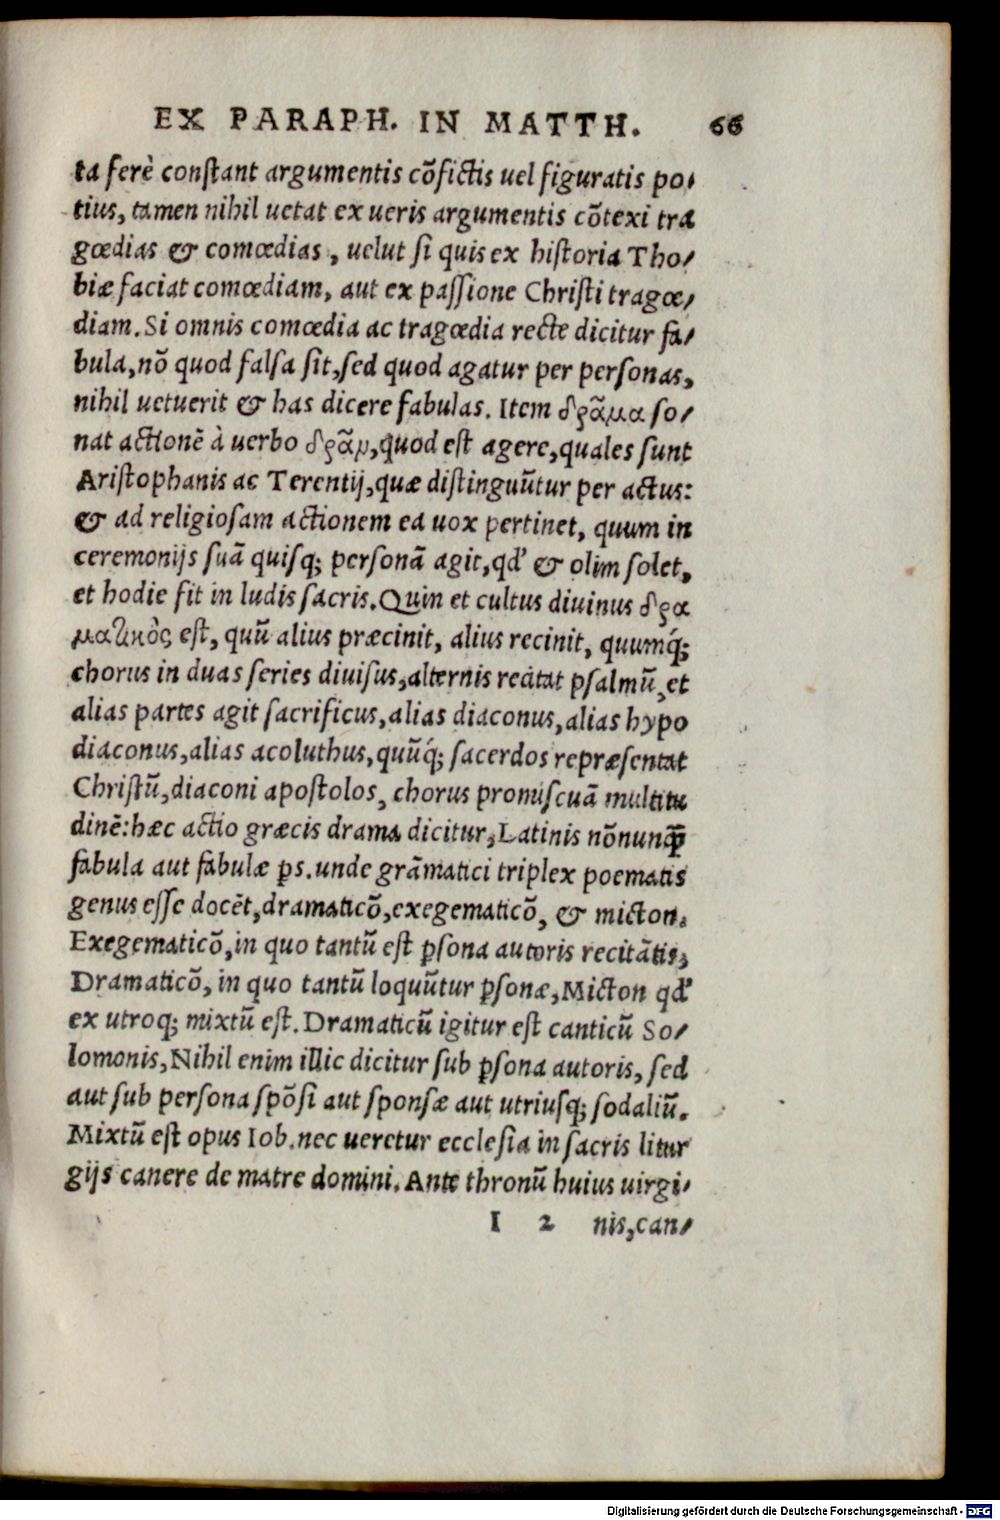 EX PARAPH. IN MATTH. 66
ta ferè conſtant argumentis cõfictis uel figuratis po-
tius, tamen nihil uetat ex ueris argumentis cõtexi tra
gœdias & comœdias, uelut ſi quis ex hiſtoria Tho-
biæ faciat comœdiam, aut ex paſſione Chriſti tragœ-
diam. Si omnis comœdia ac tragœdia recte dicitur fa-
bula, nõ quod falſa ſit, ſed quod agatur per perſonas,
nihil uetuerit & has dicere fabulas. Item δρᾶμα ſo-
nat actionẽ à uerbo δρᾶν, quod eſt agere, quales ſunt
Ariſtophanis ac Terentij, quæ diſtinguũtur per actus:
& ad religioſam actionem ea uox pertinet, quum in
ceremonijs ſuã quiſq; perſonã agit, qđ & olim ſolet,
et hodie fit in ludis ſacris. Quin et cultus diuinus δρα
ματικὸς eſt, quũ alius præcinit, alius recinit, quumq́;
chorus in duas ſeries diuiſus, alternis recitat pſalmũ, et
alias partes agit ſacrificus, alias diaconus, alias hypo
diaconus, alias acoluthus, quũq́; ſacerdos repræſentat
Chriſtũ, diaconi apoſtolos, chorus promiſcuã multitu
dinẽ: hæc actio græcis drama dicitur, Latinis nõnunꝗ̃
fabula aut fabulæ ꝑs. unde grãmatici triplex poematis
genus eſſe docẽt, dramaticõ, exegematicõ, & micton.
Exegematicõ, in quo tantũ eſt ꝑſona autoris recitãtis,
Dramaticõ, in quo tantũ loquũtur ꝑſonæ, Micton qđ
ex utroq; mixtũ eſt. Dramaticũ igitur eſt canticũ So-
lomonis, Nihil enim illic dicitur ſub ꝑſona autoris, ſed
aut ſub perſona ſpõſi aut ſponſæ aut utriuſq; ſodaliũ.
Mixtũ eſt opus Iob. nec ueretur eccleſia in ſacris litur
gijs canere de matre domini. Ante thronũ huius uirgi-
I 2 nis, can-
Digitalisierung gefördert durch die Deutsche Forschungsgemeinschaft - DFG